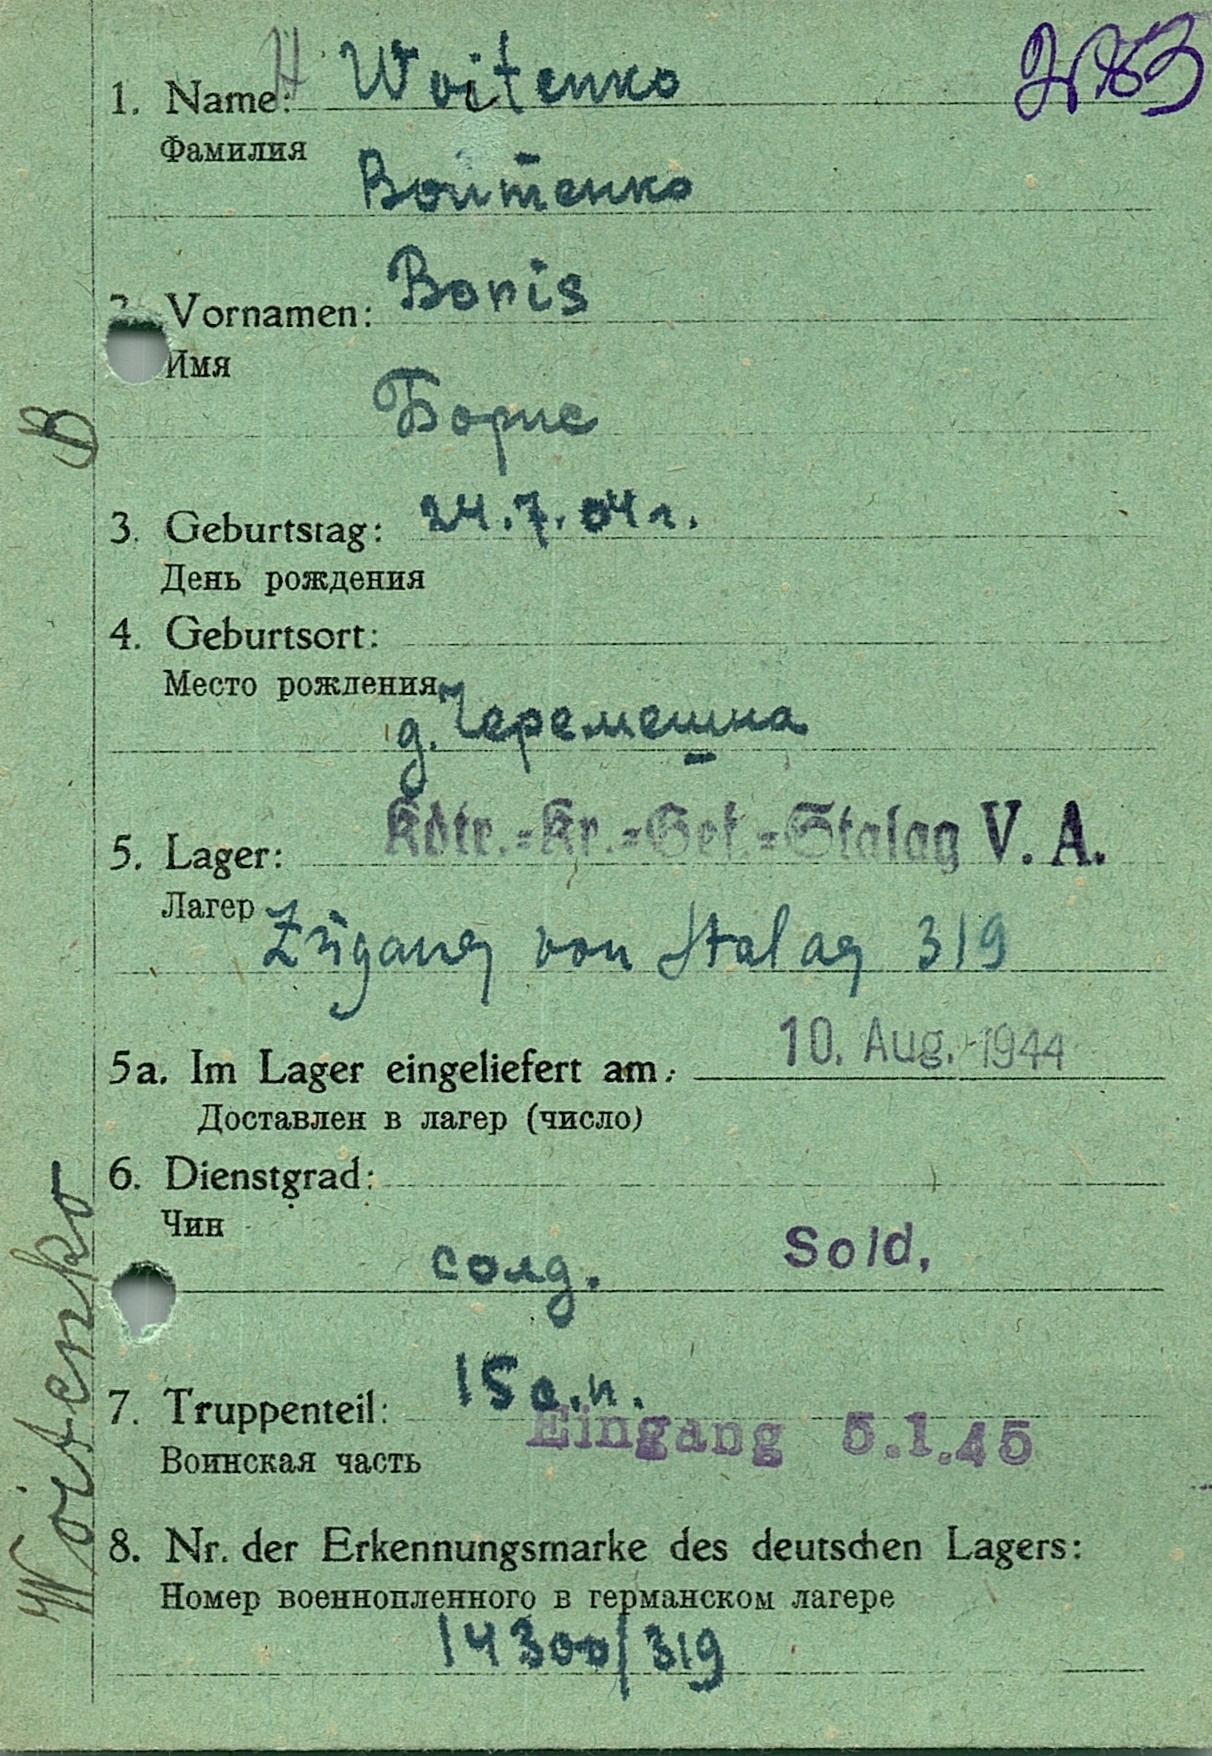 H
1. Name: Woitenko
Фамилия
Войтенко
2. Vornamen: Boris
Имя
Борис
B
3. Geburtstag: 24.7.04 г.
День рождения
4. Geburtsort:
Место рождения
д. Черемешна
5. Lager: Kdtr.-Kr.-Gef.-Stalag V. A.
Лагер
Zugang von Stalag 319
5a. Im Lager eingeliefert am: 10. Aug. 1944
Доставлен в лагер (число)
6. Dienstgrad:
Чин
солд. Sold.
7. Truppenteil: 15 с.п.
Eingang 5.1.45
Воинская часть
8. Nr. der Erkennungsmarke des deutschen Lagers:
Номер военнопленного в германском лагере
14300/319
Woitenko